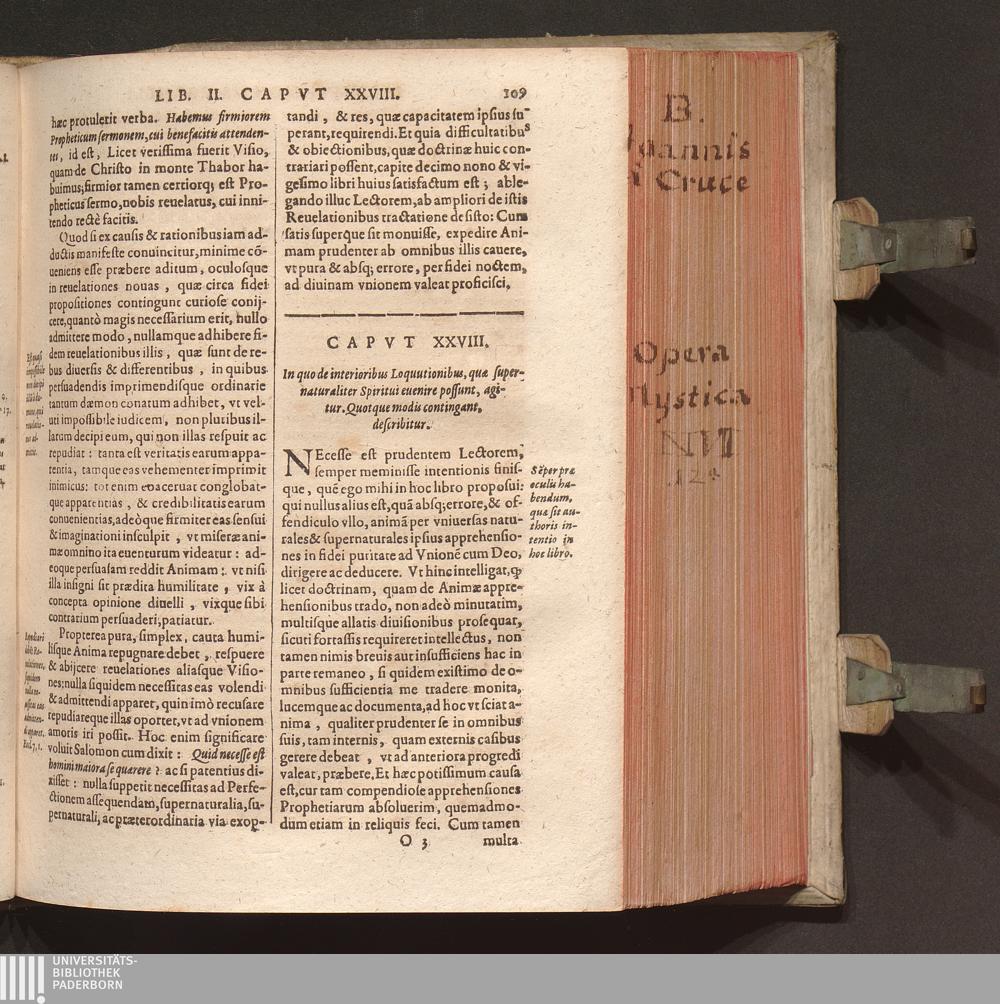 LIB. II. CAPVT XXVIII. 109
hæc protulerit verba. Habemus firmiorem
Propheticum sermonem, cui benefacitis attenden-
tes, id est, Licet verissima fuerit Visio,
quam de Christo in monte Thabor ha-
buimus; firmior tamen certiorq; est Pro-
pheticus sermo, nobis reuelatus, cui inni-
tendo rectè facitis.
Quod si ex causis & rationibus iam ad-
ductis manifeste conuincitur, minime cō-
ueniens esse præbere aditum, oculosque
in reuelationes nouas, quæ circa fidei
propositiones contingunt curiose conij-
cere, quantò magis necessarium erit, nullo
admittere modo, nullamque adhibere fi-
dem reuelationibus illis, quæ sunt de re-
bus diuersis & differentibus, in quibus
persuadendis imprimendisque ordinarie
tantum dæmon conatum adhibet, vt vel-
uti impossibile iudicem, non pluribus il-
larum decipi eum, qui non illas respuit ac
repudiat: tanta est veritatis earum appa-
rentia, tamque eas vehementer imprimit
inimicus: tot enim coaceruat conglobat-
que apparentias, & credibilitatis earum
conuenientias, adeòque firmiter eas sensui
& imaginationi insculpit, vt miseræ ani-
mæ omnino ita euenturum videatur: ad-
eoque persuasam reddit Animam: vt nisi
illa insigni sit prædita humilitate, vix à
concepta opinione diuelli, vixque sibi
contrarium persuaderi, patiatur.
Propterea pura, simplex, cauta humi-
lisque Anima repugnare debet, respuere
& abijcere reuelationes aliasque Visio-
nes: nulla siquidem necessitas eas volendi
& admittendi apparet, quin imò recusare
repudiareque illas oportet, vt ad vnionem
amoris iri possit. Hoc enim significare
voluit Salomon cum dixit: Quid necesse est
homini maiora se quærere? ac si patentius di-
xisset: nulla suppetit necessitas ad Perfe-
ctionem assequendam, supernaturalia, su-
pernaturali, ac præterordinaria via exop-
Eccl. 7, 1.
tandi, & res, quæ capacitatem ipsius su
perant, requirendi. Et quia difficultatibus
& obiectionibus, quæ doctrinæ huic con-
trariari possent, capite decimo nono & vi-
gesimo libri huius satisfactum est; able-
gando illuc Lectorem, ab ampliori de istis
Reuelationibus tractatione desisto: Cum
satis superque sit monuisse, expedire Ani-
mam prudenter ab omnibus illis cauere,
vt pura & absq; errore, per fidei noctem,
ad diuinam vnionem valeat proficisci.
CAPVT XXVIII.
In quo de interioribus Loquutionibus, quæ super-
naturaliter Spiritui euenire possunt, agi-
tur. Quotque modis contingant,
describitur.
NEcesse est prudentem Lectorem,
semper meminisse intentionis finis-
que, quē ego mihi in hoc libro proposui:
qui nullus alius est, quā absq; errore, & of-
fendiculo vllo, animā per vniuersas natu-
rales & supernaturales ipsius apprehensio-
nes in fidei puritate ad Vnionē cum Deo,
dirigere ac deducere. Vt hinc intelligat, ꝙ
licet doctrinam, quam de Animæ appre-
hensionibus trado, non adeò minutatim,
multisque allatis diuisionibus prosequar,
sicuti fortassis requireret intellectus, non
tamen nimis breuis aut insufficiens hac in
parte remaneo, si quidem existimo de o-
mnibus sufficientia me tradere monita,
lucemque ac documenta, ad hoc vt sciat a-
nima, qualiter prudenter se in omnibus
suis, tam internis, quam externis casibus
gerere debeat, vt ad anteriora progredi
valeat, præbere. Et hæc potissimum causa
est, cur tam compendiose apprehensiones
Prophetiarum absoluerim, quemadmo-
dum etiam in reliquis feci. Cum tamen
O 3 multa
Sēper præ
oculis ha-
bendum,
quæ sit au-
thoris in-
tentio in
hoc libro.
B.
Joannis
à Cruce
Opera
Mystica
UNIVERSITÄTS-
BIBLIOTHEK
PADERBORN